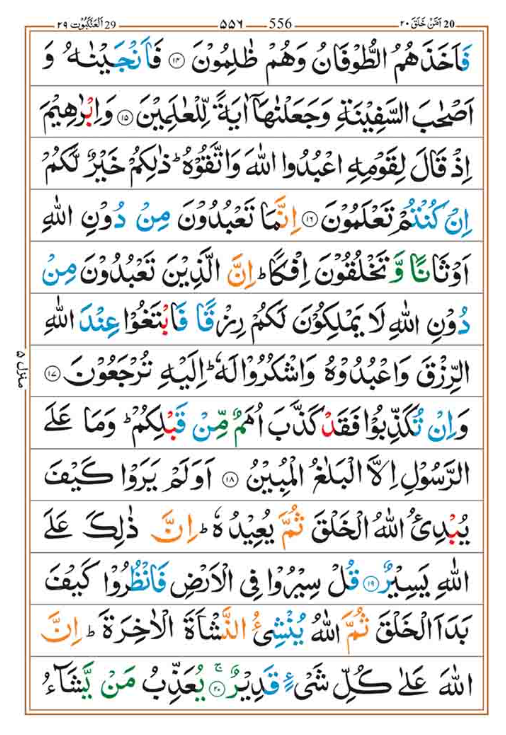 العنکبوت ۲۹ 29 ۵۵۶ 556 امن خلق ۲۰ 20
فَاَخَذَهُمُ الطُّوْفَانُ وَهُمْ ظٰلِمُوْنَ ۝۱۴ فَاَنْجَيْنٰهُ وَ
اَصْحٰبَ السَّفِيْنَةِ وَجَعَلْنٰهَاۤ اٰيَةً لِّلْعٰلَمِيْنَ ۝۱۵ وَاِبْرٰهِيْمَ
اِذْ قَالَ لِقَوْمِهِ اعْبُدُوا اللّٰهَ وَاتَّقُوْهُ ؕ ذٰلِكُمْ خَيْرٌ لَّكُمْ
اِنْ كُنْتُمْ تَعْلَمُوْنَ ۝۱۶ اِنَّمَا تَعْبُدُوْنَ مِنْ دُوْنِ اللّٰهِ
اَوْثَانًا وَّ تَخْلُقُوْنَ اِفْكًا ؕ اِنَّ الَّذِيْنَ تَعْبُدُوْنَ مِنْ
دُوْنِ اللّٰهِ لَا يَمْلِكُوْنَ لَكُمْ رِزْقًا فَابْتَغُوْا عِنْدَ اللّٰهِ
الرِّزْقَ وَاعْبُدُوْهُ وَاشْكُرُوْا لَهٗ ؕ اِلَيْهِ تُرْجَعُوْنَ ۝۱۷
وَاِنْ تُكَذِّبُوْا فَقَدْ كَذَّبَ اُمَمٌ مِّنْ قَبْلِكُمْ ؕ وَمَا عَلَى
الرَّسُوْلِ اِلَّا الْبَلٰغُ الْمُبِيْنُ ۝۱۸ اَوَلَمْ يَرَوْا كَيْفَ
يُبْدِئُ اللّٰهُ الْخَلْقَ ثُمَّ يُعِيْدُهٗ ؕ اِنَّ ذٰلِكَ عَلَى
اللّٰهِ يَسِيْرٌ ۝۱۹ قُلْ سِيْرُوْا فِى الْاَرْضِ فَانْظُرُوْا كَيْفَ
بَدَاَ الْخَلْقَ ثُمَّ اللّٰهُ يُنْشِئُ النَّشْاَةَ الْاٰخِرَةَ ؕ اِنَّ
اللّٰهَ عَلٰى كُلِّ شَىْءٍ قَدِيْرٌ ۝۲۰ۚ يُعَذِّبُ مَنْ يَّشَآءُ
منزل ۵